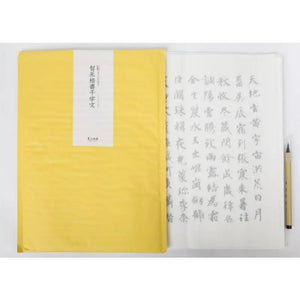 智永楷書千字文
天地玄黃宇宙洪荒日月
盈昃辰宿列張寒來暑往
秋收冬藏閏餘成歲律
調陽雲騰致雨露結為霜
金生麗水玉出崑岡劍號
巨闕珠稱夜光果珍李柰